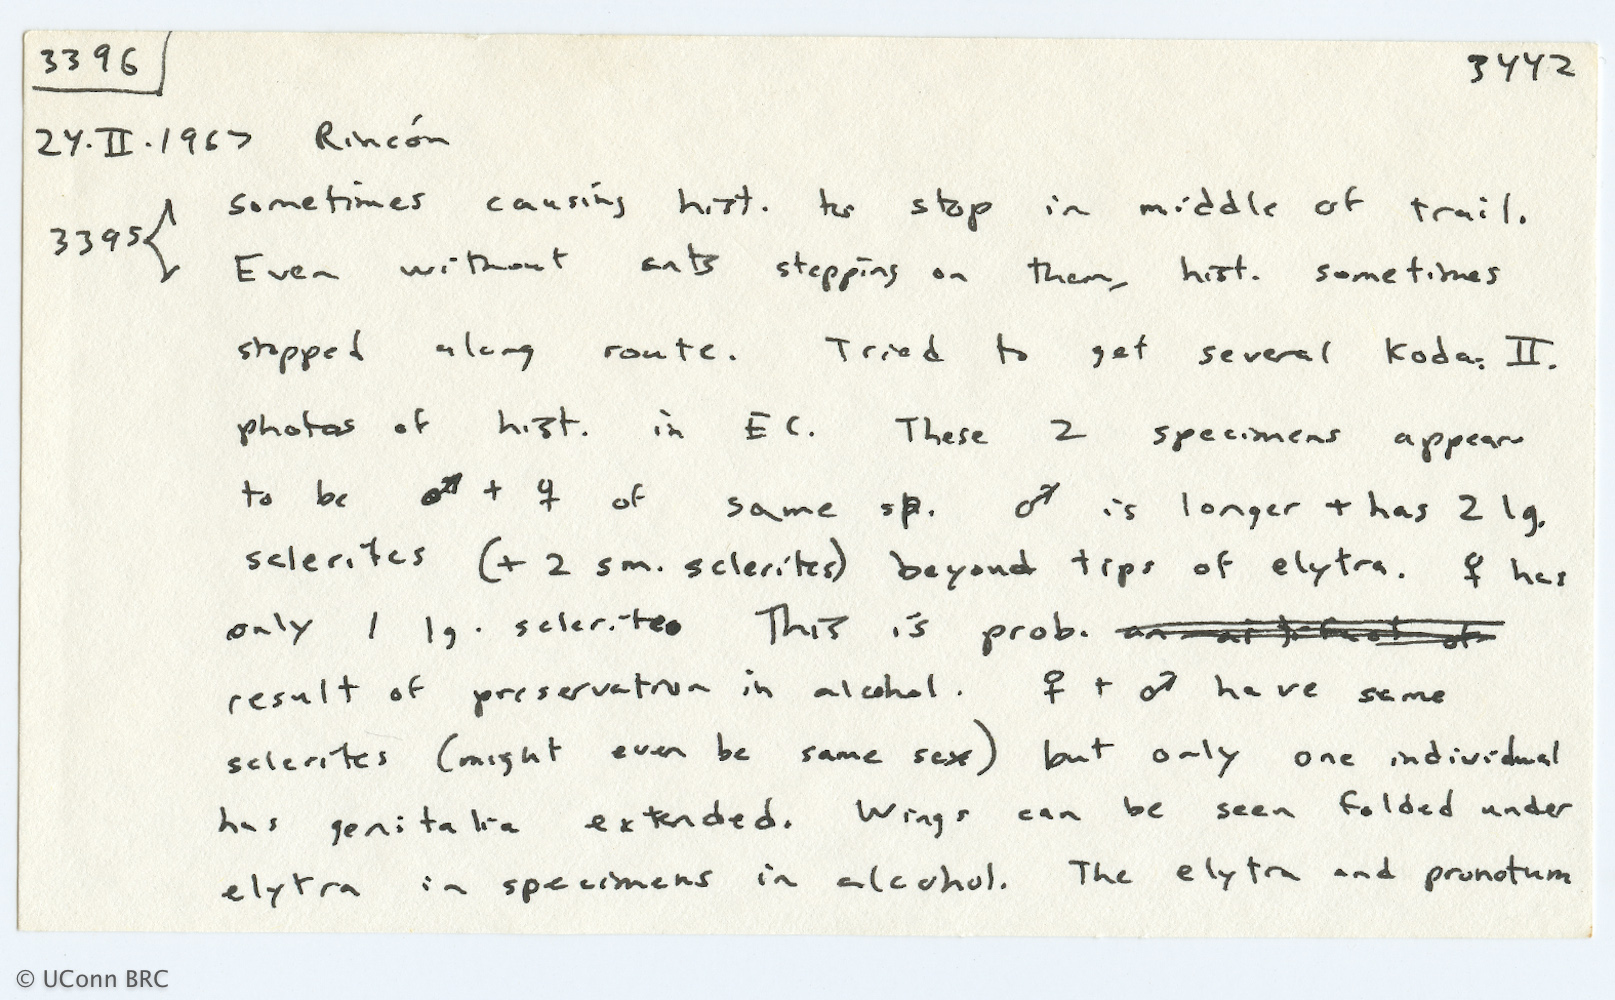 3396
3442
24.II.1967 Rincón
sometimes causing hist. to stop in middle of trail.
3395 { Even without ants stepping on them, hist. sometimes
stopped along route. Tried to get several Koda. II.
photos of hist. in EC. These 2 specimens appear
to be ♂ + ♀ of same sp. ♂ is longer + has 2 lg.
sclerites (+ 2 sm. sclerites) beyond tips of elytra. ♀ has
only 1 lg. sclerite. This is prob.
result of preservation in alcohol. ♀ + ♂ have same
sclerites (might even be same sex) but only one individual
has genitalia extended. Wings can be seen folded under
elytra in specimens in alcohol. The elytra and pronotum
© UConn BRC